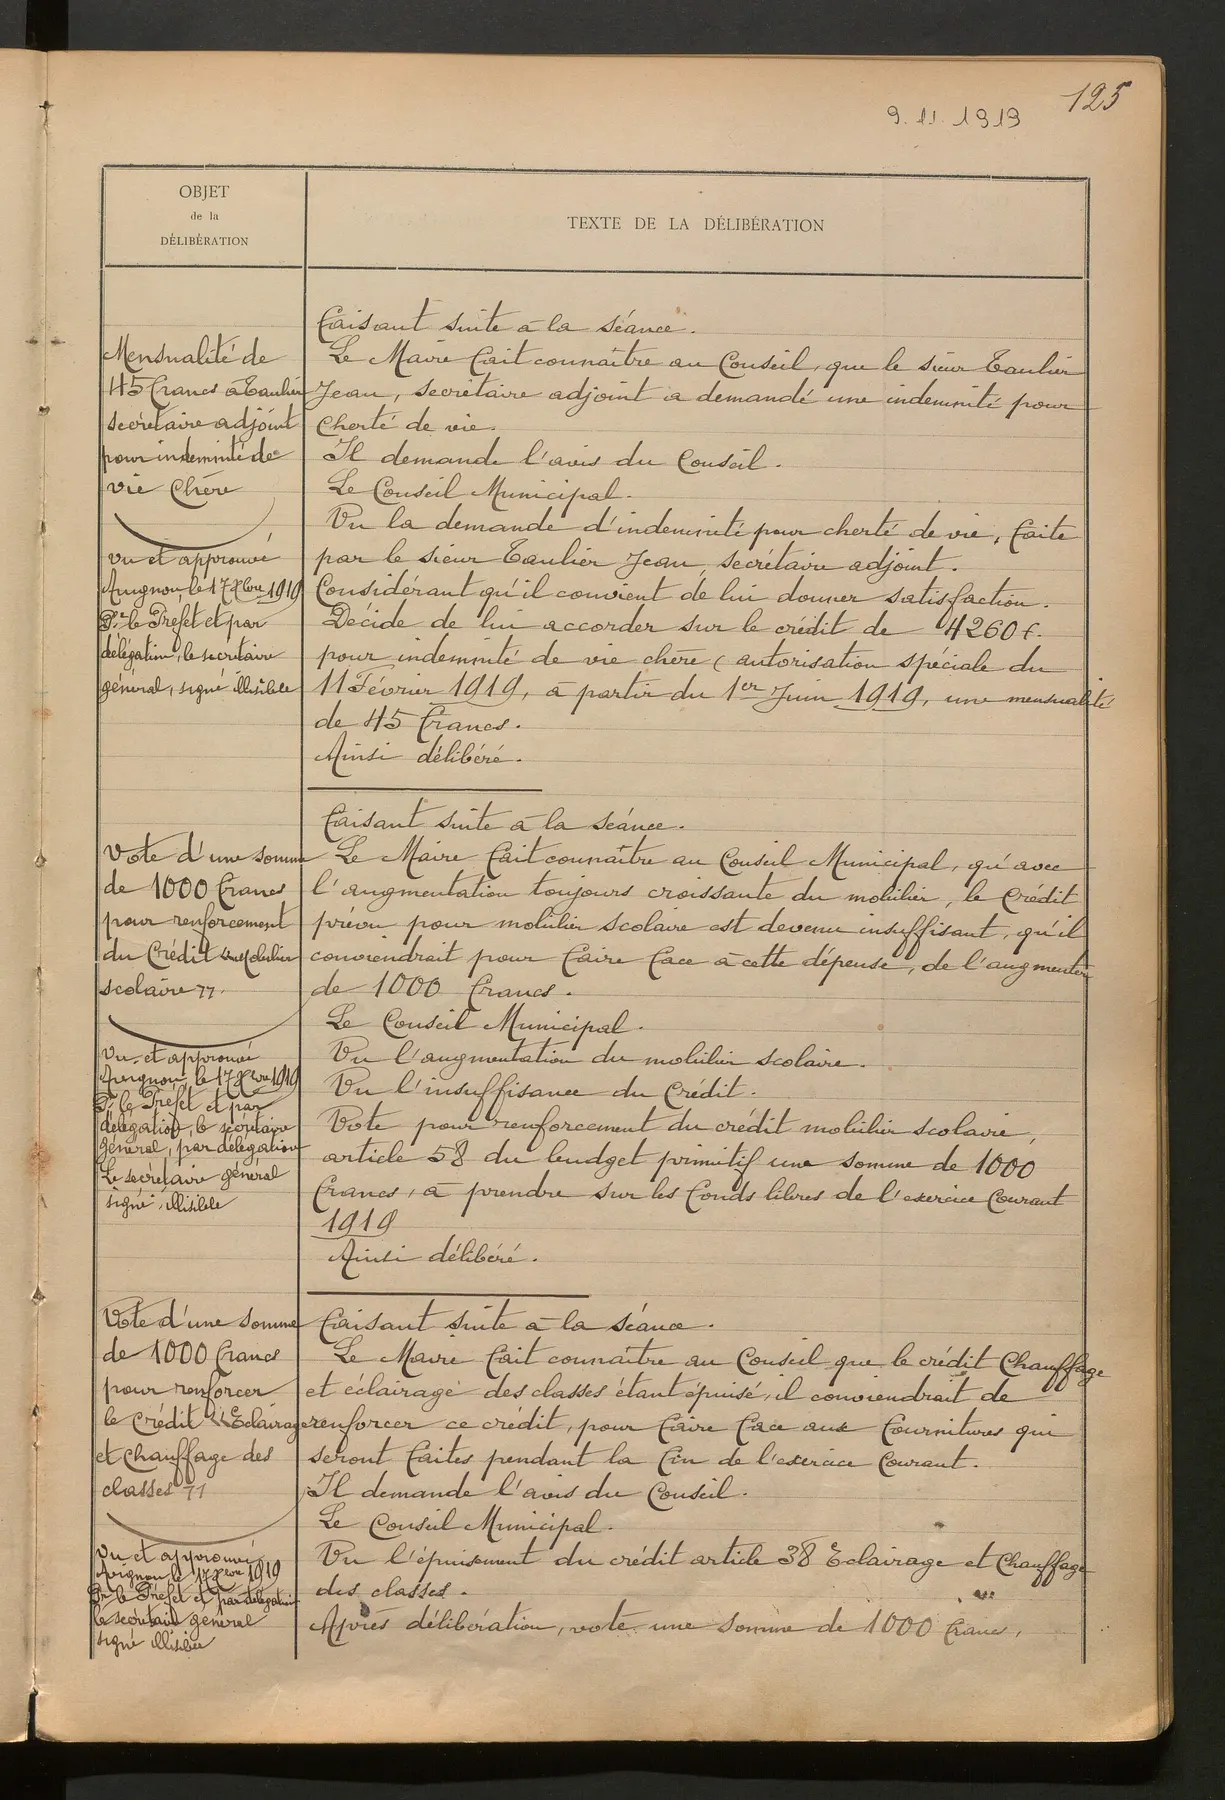 125
9.11.1919
OBJET
de la
DÉLIBÉRATION
TEXTE DE LA DÉLIBÉRATION
Mensualité de
45 francs à Taulier
secrétaire adjoint
pour indemnité de
vie chère
Vu et approuvé
Avignon, le 17 Xbre 1919
Pr le Préfet et par
délégation, le secrétaire
général, signé illisible
Faisant suite à la séance.
Le Maire fait connaître au Conseil, que le sieur Taulier
Jean, secrétaire adjoint a demandé une indemnité pour
cherté de vie.
Il demande l'avis du Conseil.
Le Conseil Municipal.
Vu la demande d'indemnité pour cherté de vie, faite
par le sieur Taulier Jean, secrétaire adjoint.
Considérant qu'il convient de lui donner satisfaction.
Décide de lui accorder sur le crédit de 4260 f.
pour indemnité de vie chère (autorisation spéciale du
11 Février 1919, à partir du 1er Juin 1919, une mensualité
de 45 francs.
Ainsi délibéré.
Vote d'une somme
de 1000 francs
pour renforcement
du Crédit "Mobilier
scolaire"
Vu et approuvé
Avignon, le 17 Xbre 1919
Pr le Préfet et par
délégation, le secrétaire
général, par délégation
Le secrétaire général
signé, illisible
Faisant suite à la séance.
Le Maire fait connaître au Conseil Municipal, qu'avec
l'augmentation toujours croissante du mobilier, le crédit
prévu pour mobilier scolaire est devenu insuffisant, qu'il
conviendrait pour faire face à cette dépense, de l'augmenter
de 1000 francs.
Le Conseil Municipal.
Vu l'augmentation du mobilier scolaire.
Vu l'insuffisance du Crédit.
Vote pour renforcement du crédit mobilier scolaire,
article 58 du budget primitif une somme de 1000
francs, à prendre sur les fonds libres de l'exercice Courant
1919
Ainsi délibéré.
Vote d'une somme
de 1000 francs
pour renforcer
le Crédit "Eclairage
et Chauffage des
classes"
Vu et approuvé
Avignon le 17 Xbre 1919
Pr le Préfet et par délégation
le secrétaire général
signé illisible
Faisant suite à la séance.
Le Maire fait connaître au Conseil que le crédit Chauffage
et éclairage des classes étant épuisé, il conviendrait de
renforcer ce crédit, pour faire face aux fournitures qui
seront faites pendant la fin de l'exercice Courant.
Il demande l'avis du Conseil.
Le Conseil Municipal.
Vu l'épuisement du crédit article 38 Eclairage et Chauffage
des classes.
Après délibération, vote une somme de 1000 francs,